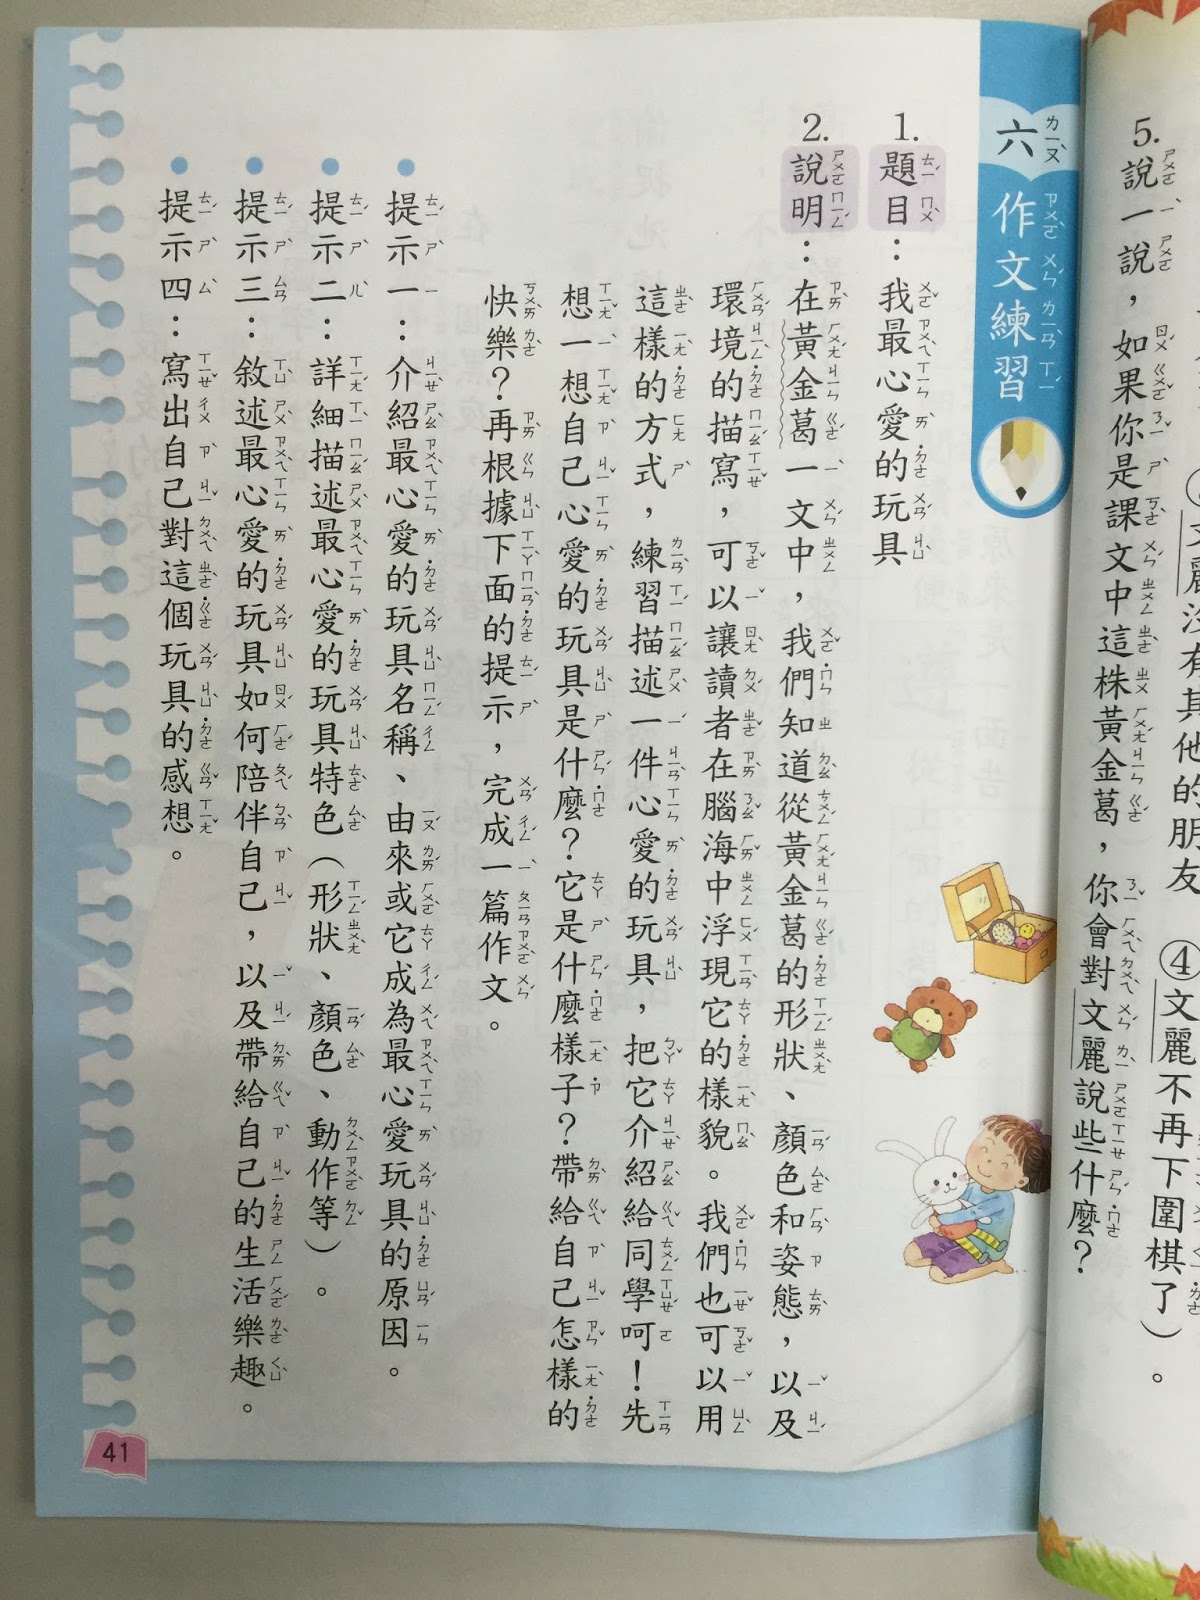 5.說一說，如果你是課文中這株黃金葛，你會對文麗說些什麼？
文麗沒有其他的朋友 ④文麗不再下圍棋了）。
六 作文練習
1.題目：我最心愛的玩具
2.說明：在黃金葛一文中，我們知道從黃金葛的形狀、顏色和姿態，以及
環境的描寫，可以讓讀者在腦海中浮現它的樣貌。我們也可以用
這樣的方式，練習描述一件心愛的玩具，把它介紹給同學呵！先
想一想自己心愛的玩具是什麼？它是什麼樣子？帶給自己怎樣的
快樂？再根據下面的提示，完成一篇作文。
提示一：介紹最心愛的玩具名稱、由來或它成為最心愛玩具的原因。
提示二：詳細描述最心愛的玩具特色（形狀、顏色、動作等）。
提示三：敘述最心愛的玩具如何陪伴自己，以及帶給自己的生活樂趣。
提示四：寫出自己對這個玩具的感想。
41